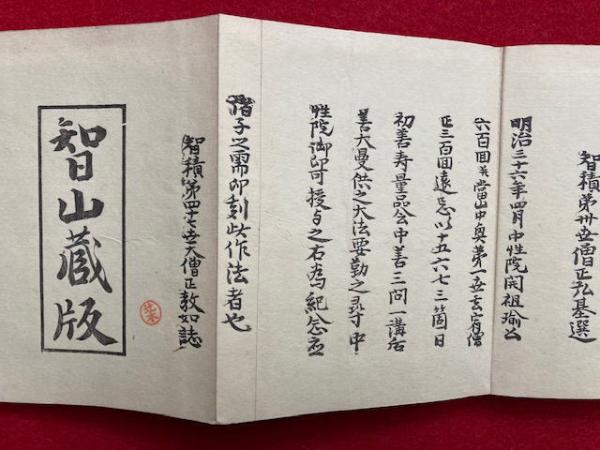 智積第卅世僧正弘基選
明治三十六年四月中性院開祖瑜公
六百回并當山中興第一世玄宥僧
正三百回遠忌以十五六七三箇日
初善寿量品会中善三問一講后
善大曼供之大法要勤之尋中
性院御印可授与之右為紀念应
諸子之需即刻此作法者也
智積第四十七世大僧正教如誌
智山蔵版